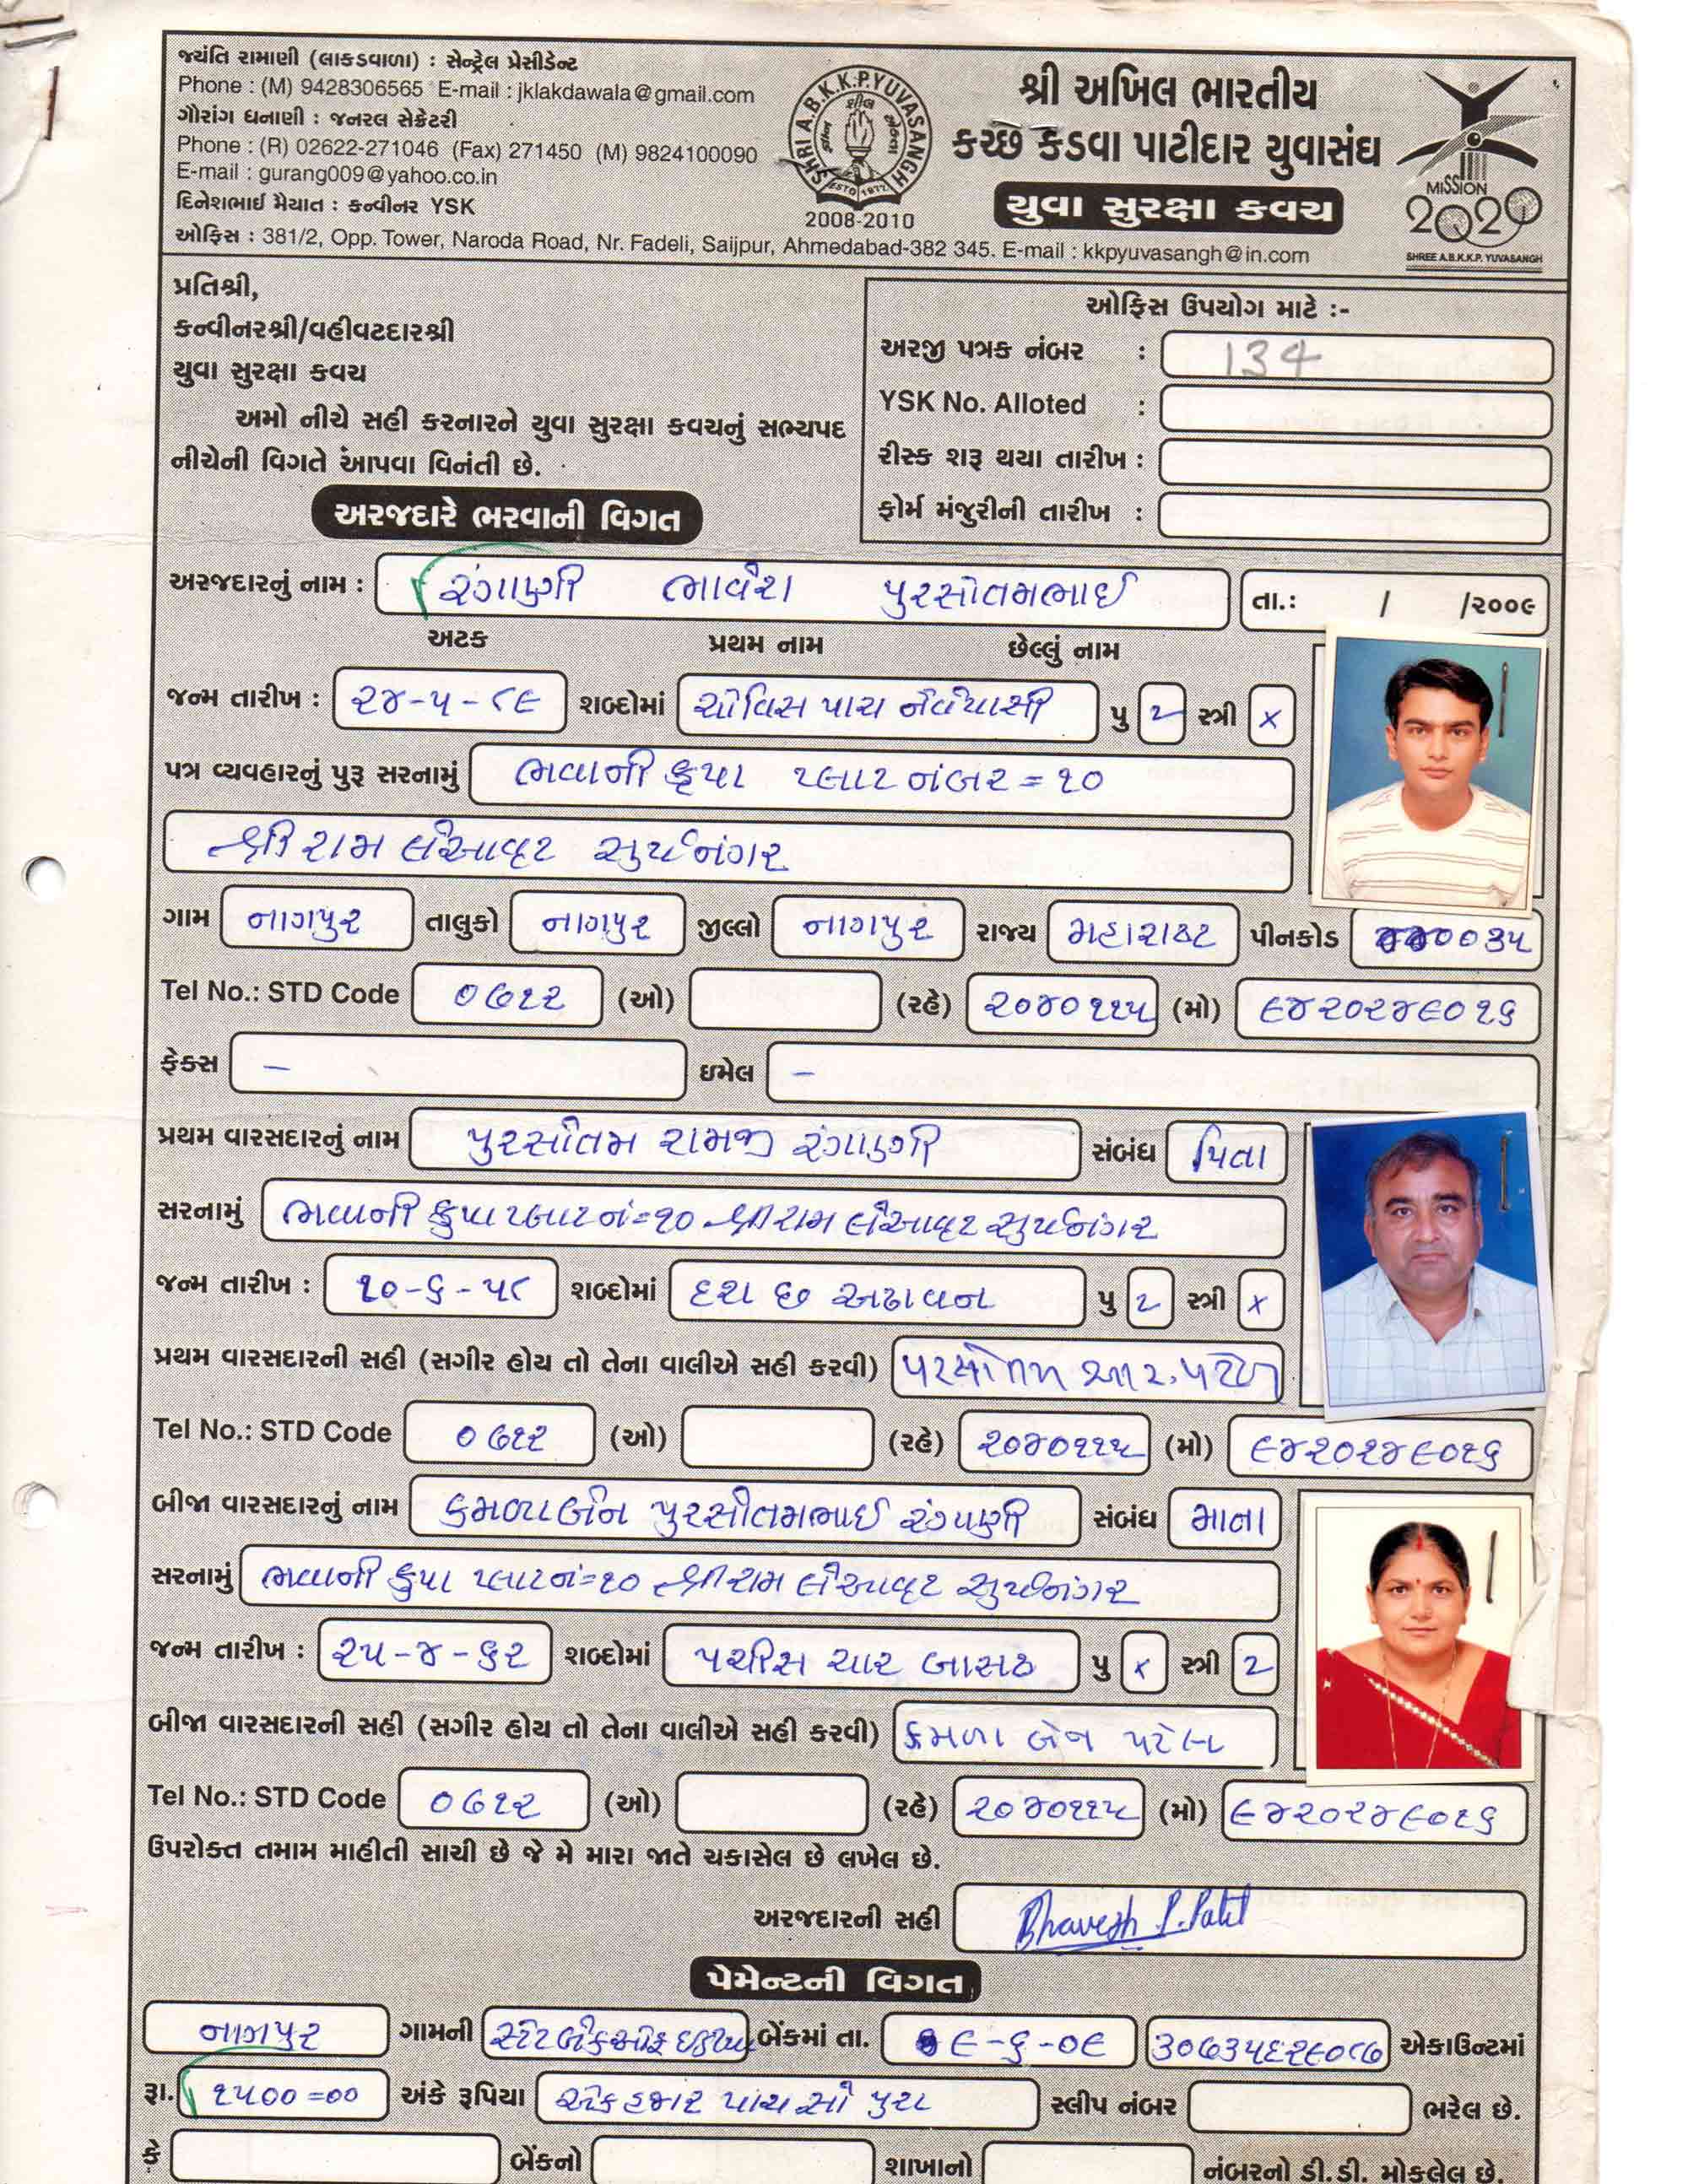 જયંતિ રામાણી (લાકડાવાળા) : સેન્ટ્રલ પ્રેસીડેન્ટ
Phone : (M) 9428306565 E-mail : jklakdawala@gmail.com
ગૌરાંગ ધનાણી : જનરલ સેક્રેટરી
Phone : (R) 02622-271046 (Fax) 271450 (M) 9824100090
E-mail : gurang009@yahoo.co.in
દિનેશભાઈ મૈયાત : કન્વીનર YSK
ઓફિસ : 381/2, Opp. Tower, Naroda Road, Nr. Fadeli, Saijpur, Ahmedabad-382 345. E-mail : kkpyuvasangh@in.com
SHRI A.B.K.K.P.YUVASANGH
ESTD 1977
2008-2010
શ્રી અખિલ ભારતીય
કચ્છ કડવા પાટીદાર યુવાસંઘ
યુવા સુરક્ષા કવચ
MISSION
2020
SHREE A.B.K.K.P. YUVASANGH
પ્રતિશ્રી,
કન્વીનરશ્રી/વહીવટદારશ્રી
યુવા સુરક્ષા કવચ
અમો નીચે સહી કરનારને યુવા સુરક્ષા કવચનું સભ્યપદ
નીચેની વિગતે આપવા વિનંતી છે.
ઓફિસ ઉપયોગ માટે :-
અરજી પત્રક નંબર : 134
YSK No. Alloted :
રીસ્ક શરૂ થયા તારીખ :
ફોર્મ મંજુરીની તારીખ :
અરજદારે ભરવાની વિગત
અરજદારનું નામ : રંગાણી ભાવેશ પુરસોતમભાઈ તા.: / /૨૦૦૯
અટક પ્રથમ નામ છેલ્લું નામ
જન્મ તારીખ : ૨૪-૫-૮૯ શબ્દોમાં ચોવિસ પાચ નેવ્યાસી પુ ✓ સ્ત્રી x
પત્ર વ્યવહારનું પુરૂ સરનામું ભવાની કૃપા પ્લાટ નંબર = ૧૦
શ્રી રામ લેઆવૂટ સુર્યનગર
ગામ નાગપુર તાલુકો નાગપુર જીલ્લો નાગપુર રાજ્ય મહારાષ્ટ્ર પીનકોડ ૪૪૦૦૩૫
Tel No.: STD Code ૦૭૧૨ (ઓ) (રહે) ૨૦૪૦૧૧૫ (મો) ૯૪૨૦૨૪૯૦૧૬
ફેક્સ – ઇમેલ –
પ્રથમ વારસદારનું નામ પુરસોતમ રામજી રંગાણી સંબંધ પિતા
સરનામું ભવાની કૃપા પ્લાટ નં=૧૦ શ્રી રામ લેઆવૂટ સુર્યનગર
જન્મ તારીખ : ૧૦-૬-૫૮ શબ્દોમાં દશ છ અઠાવન પુ ✓ સ્ત્રી x
પ્રથમ વારસદારની સહી (સગીર હોય તો તેના વાલીએ સહી કરવી) પરસોતમ આર. પટેલ
Tel No.: STD Code ૦૭૧૨ (ઓ) (રહે) ૨૦૪૦૧૧૫ (મો) ૯૪૨૦૨૪૯૦૧૬
બીજા વારસદારનું નામ કમળાબેન પુરસોતમભાઈ રંગાણી સંબંધ માતા
સરનામું ભવાની કૃપા પ્લાટ નં=૧૦ શ્રી રામ લેઆવૂટ સુર્યનગર
જન્મ તારીખ : ૨૫-૪-૬૨ શબ્દોમાં પચીસ ચાર બાસઠ પુ x સ્ત્રી ✓
બીજા વારસદારની સહી (સગીર હોય તો તેના વાલીએ સહી કરવી) કમળા બેન પટેલ
Tel No.: STD Code ૦૭૧૨ (ઓ) (રહે) ૨૦૪૦૧૧૫ (મો) ૯૪૨૦૨૪૯૦૧૬
ઉપરોક્ત તમામ માહીતી સાચી છે જે મે મારા જાતે ચકાસેલ છે લખેલ છે.
અરજદારની સહી Bhavesh P. Patel
પેમેન્ટની વિગત
નાગપુર ગામની સ્ટેટ બેંક ઓફ ઇંડીયા બેંકમાં તા. ૯-૬-૦૯ ૩૦૭૩૫૬૨૯૦૮૭ એકાઉન્ટમાં
રૂા. ૧૫૦૦=૦૦ અંકે રૂપિયા એક હજાર પાચ સો પુરા સ્લીપ નંબર ભરેલ છે.
કે બેંકનો શાખાનો નંબરનો ડી.ડી. મોકલેલ છે.